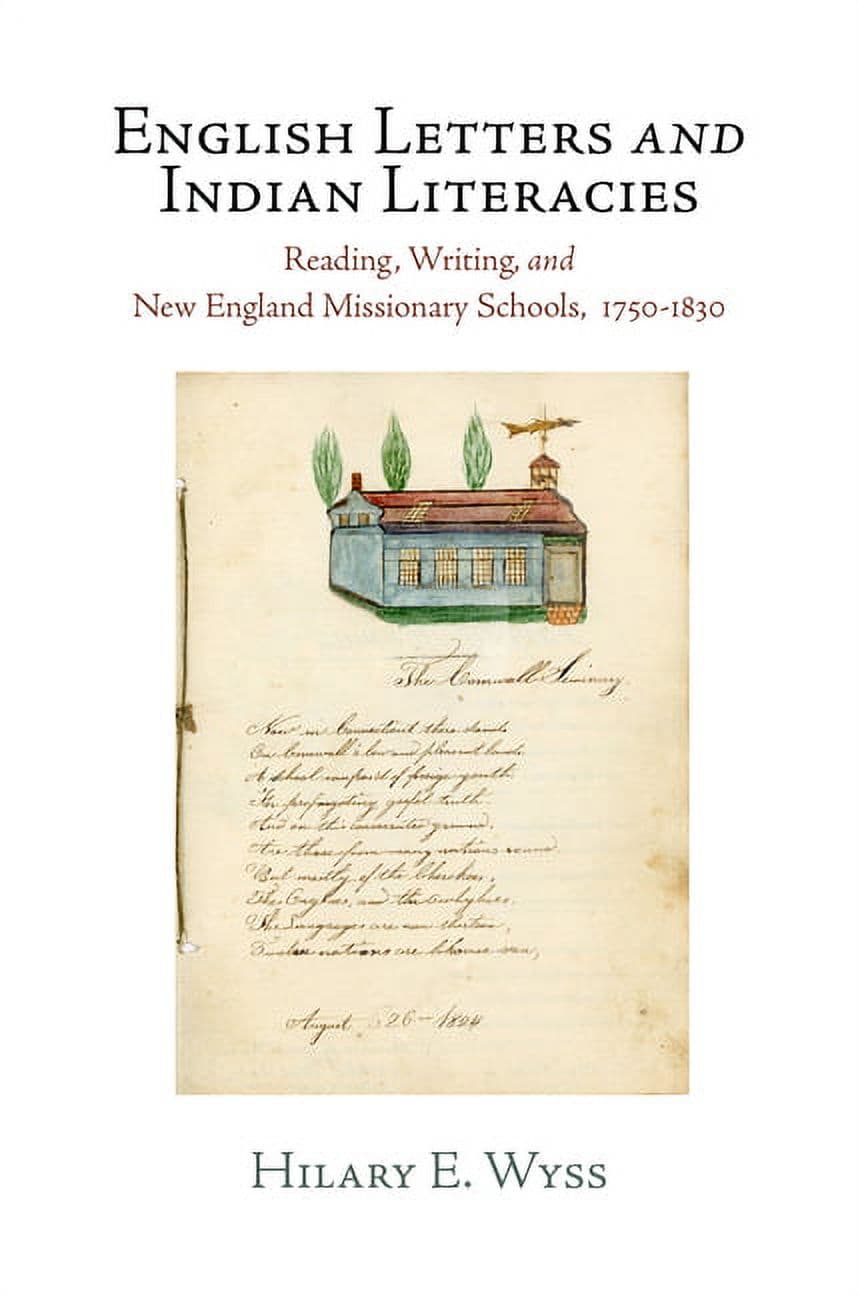 ENGLISH LETTERS AND
INDIAN LITERACIES
Reading, Writing, and
New England Missionary Schools, 1750-1830
The Cornwall Seminary.
Now in Connecticut there stands
On Cornwall's low and pleasant lands
A school compos'd of foreign youth
For propagating gospel truth
And on this consecrated ground,
Are those from many nations round
But mostly of the Cherokees,
The Languages are now thirteen,
Twelve nations are likewise seen,
August 26 — 1824
HILARY E. WYSS